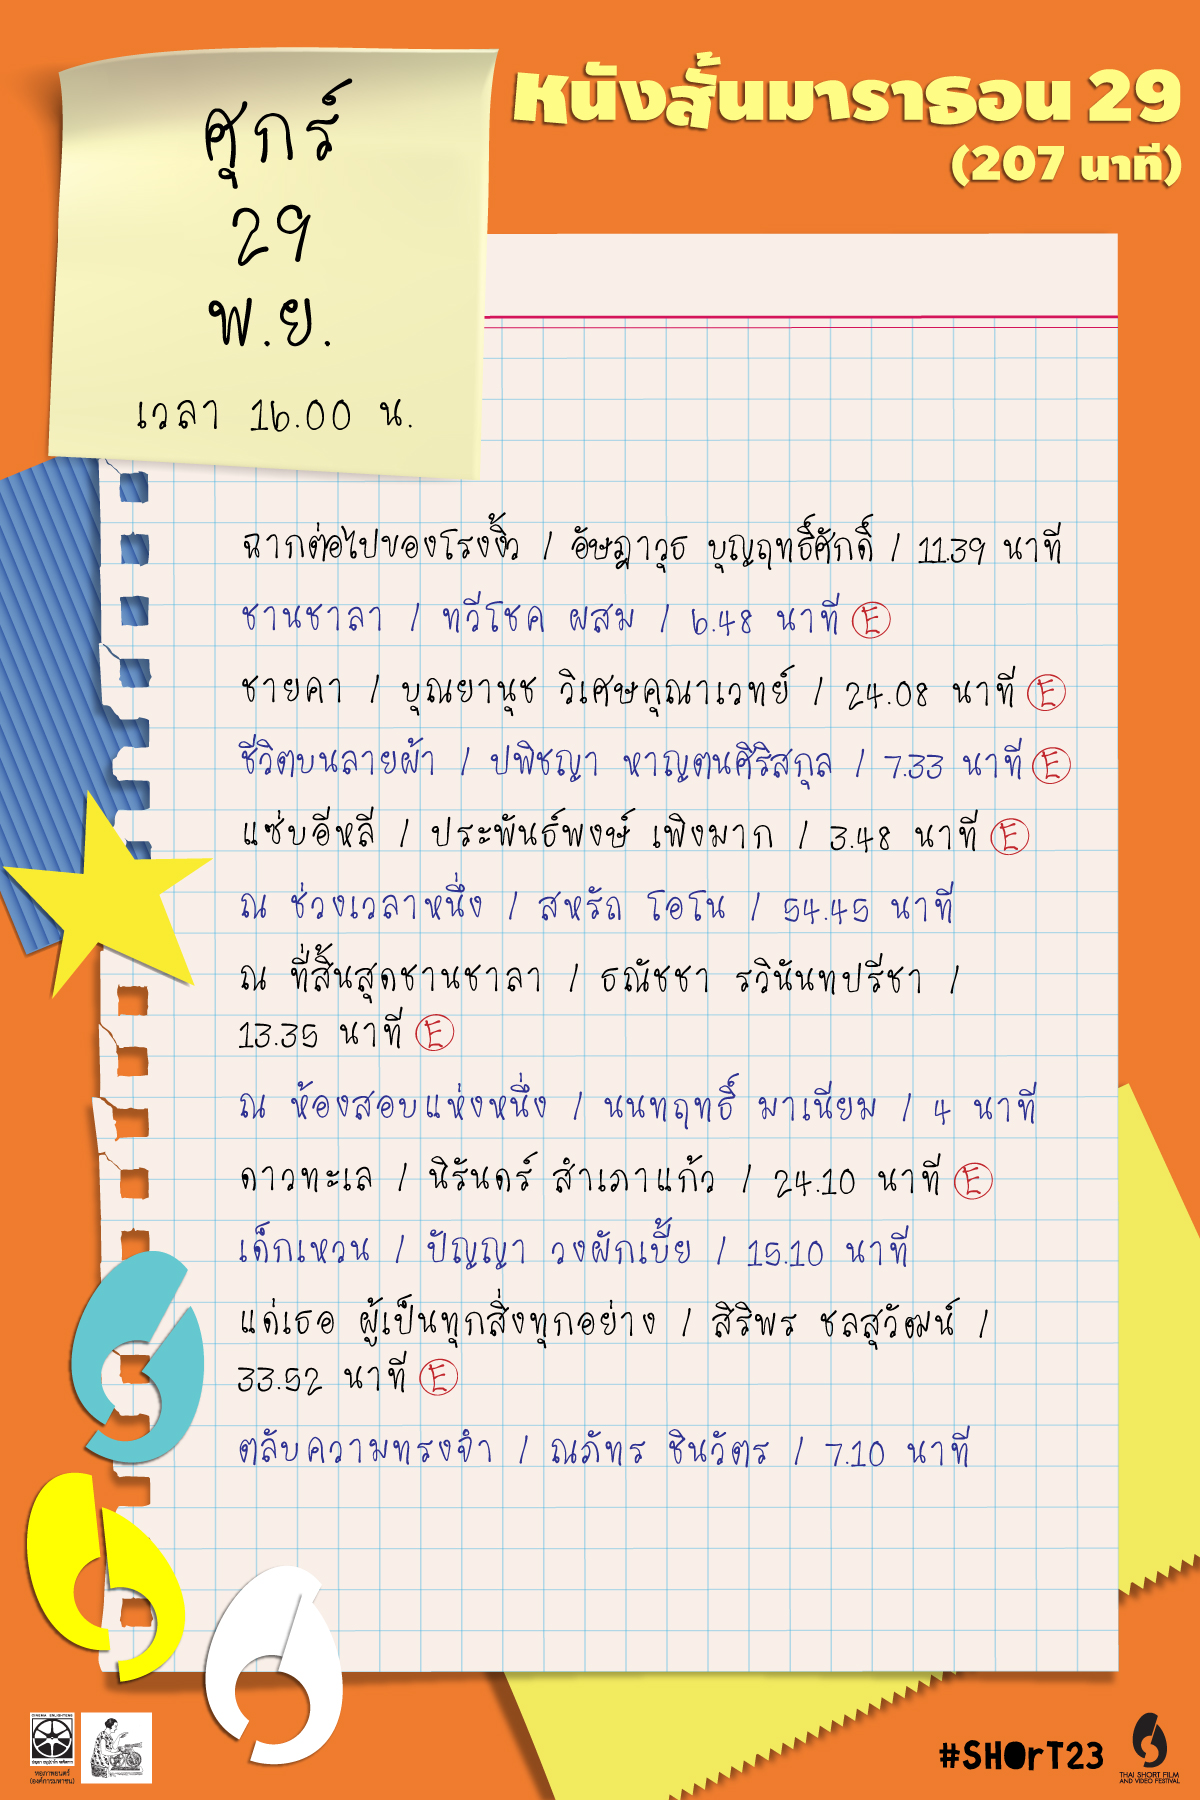 ศุกร์
29
พ.ย.
เวลา 16.00 น.
หนังสั้นมาราธอน 29
(207 นาที)
ฉากต่อไปของโรงงิ้ว / อัษฎาวุธ บุญฤทธิ์ศักดิ์ / 11.39 นาที
ชานชาลา / ทวีโชค ผสม / 6.48 นาที E
ชายคา / บุณยานุช วิเศษคุณาเวทย์ / 24.08 นาที E
ชีวิตบนลายผ้า / ปพิชญา หาญตนศิริสกุล / 7.33 นาที E
แซ่บอีหลี / ประพันธ์พงษ์ เพิงมาก / 3.48 นาที E
ณ ช่วงเวลาหนึ่ง / สหรัถ โอโน / 54.45 นาที
ณ ที่สิ้นสุดชานชาลา / ธณัชชา รวินันทปรีชา /
13.35 นาที E
ณ ห้องสอบแห่งหนึ่ง / นนทฤทธิ์ มาเนียม / 4 นาที
ดาวทะเล / นิรันดร์ สำเภาแก้ว / 24.10 นาที E
เด็กเหวน / ปัญญา วงผักเบี้ย / 15.10 นาที
แด่เธอ ผู้เป็นทุกสิ่งทุกอย่าง / สิริพร ชลสุวัฒน์ /
33.52 นาที E
ตลับความทรงจำ / ณภัทร ชินวัตร / 7.10 นาที
หอภาพยนตร์
(องค์การมหาชน)
#SHOrT23
THAI SHORT FILM
AND VIDEO FESTIVAL